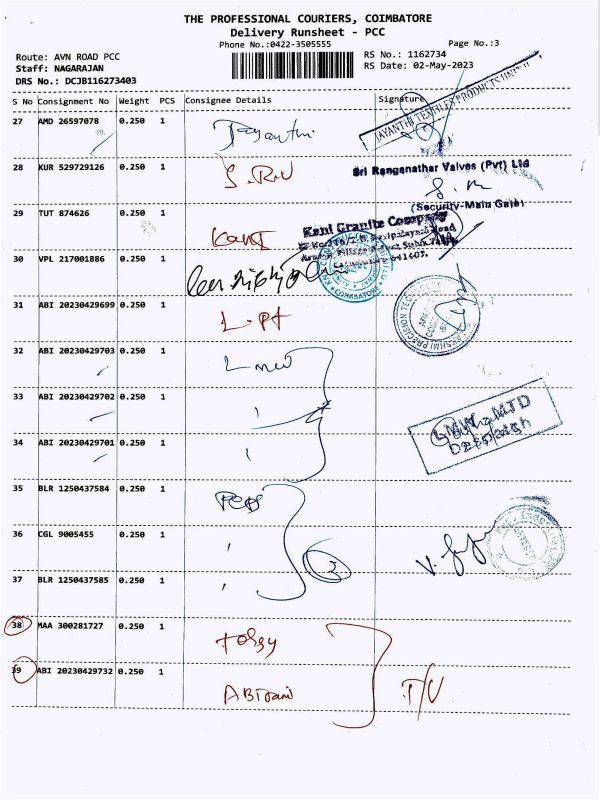 THE PROFESSIONAL COURIERS, COIMBATORE
Delivery Runsheet - PCC
Phone No.:0422-3505555
Page No.:3
Route: AVN ROAD PCC
RS No.: 1162734
Staff: NAGARAJAN
RS Date: 02-May-2023
DRS No.: DCJB116273403
S No Consignment No Weight PCS Consignee Details Signature
JAYANTHI TEXTILES PRODUCTS UNIT II
27 AMD 26597078 0.250 1 Jayanthi
28 KUR 529729126 0.250 1 S.R.V
Sri Ranganathar Valves (Pvt) Ltd
(Security-Main Gate)
29 TUT 874626 0.250 1 Kani
Kani Granite Company
641407.
30 VPL 217001886 0.250 1
COIMBATORE
31 ABI 20230429699 0.250 1 L-Pt
LAKSHMI PRECISION
32 ABI 20230429703 0.250 1 Lmw
33 ABI 20230429702 0.250 1
Despatch
34 ABI 20230429701 0.250 1
35 BLR 1250437584 0.250 1
36 CGL 9005455 0.250 1
37 BLR 1250437585 0.250 1
38 MAA 300281727 0.250 1
39 ABI 20230429732 0.250 1
T/V